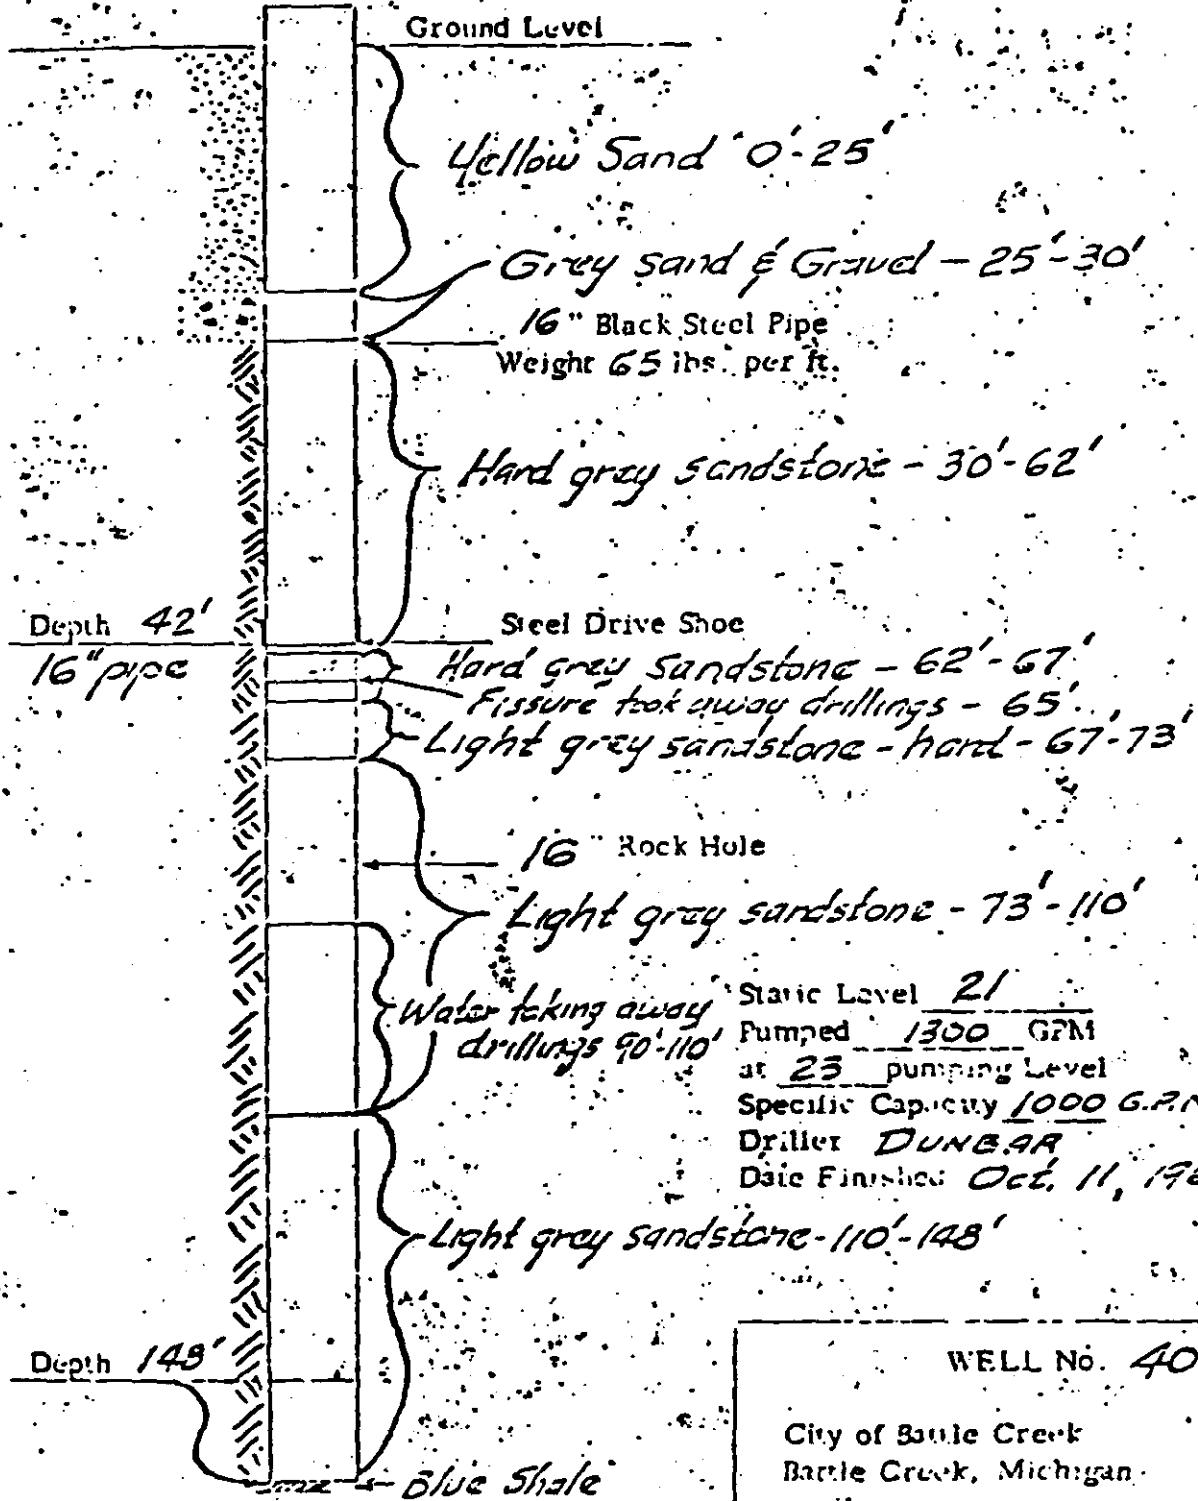 Ground Level
Yellow Sand 0'-25'
Grey Sand & Gravel - 25'-30'
16" Black Steel Pipe
Weight 65 lbs. per ft.
Hard grey sandstone - 30'-62'
Depth 42'
16" pipe
Steel Drive Shoe
Hard grey Sandstone - 62'-67'
Fissure took away drillings - 65'
Light grey sandstone - hard - 67-73'
16" Rock Hole
Light grey sandstone - 73'-110'
Water taking away
drillings 90'-110'
Static Level 21
Pumped 1300 GPM
at 23 pumping Level
Specific Capacity 1000 G.P.M
Driller DUNBAR
Date Finished Oct. 11, 198
Light grey sandstone - 110'-148'
Depth 148'
Blue Shale
WELL No. 40
City of Battle Creek
Battle Creek, Michigan